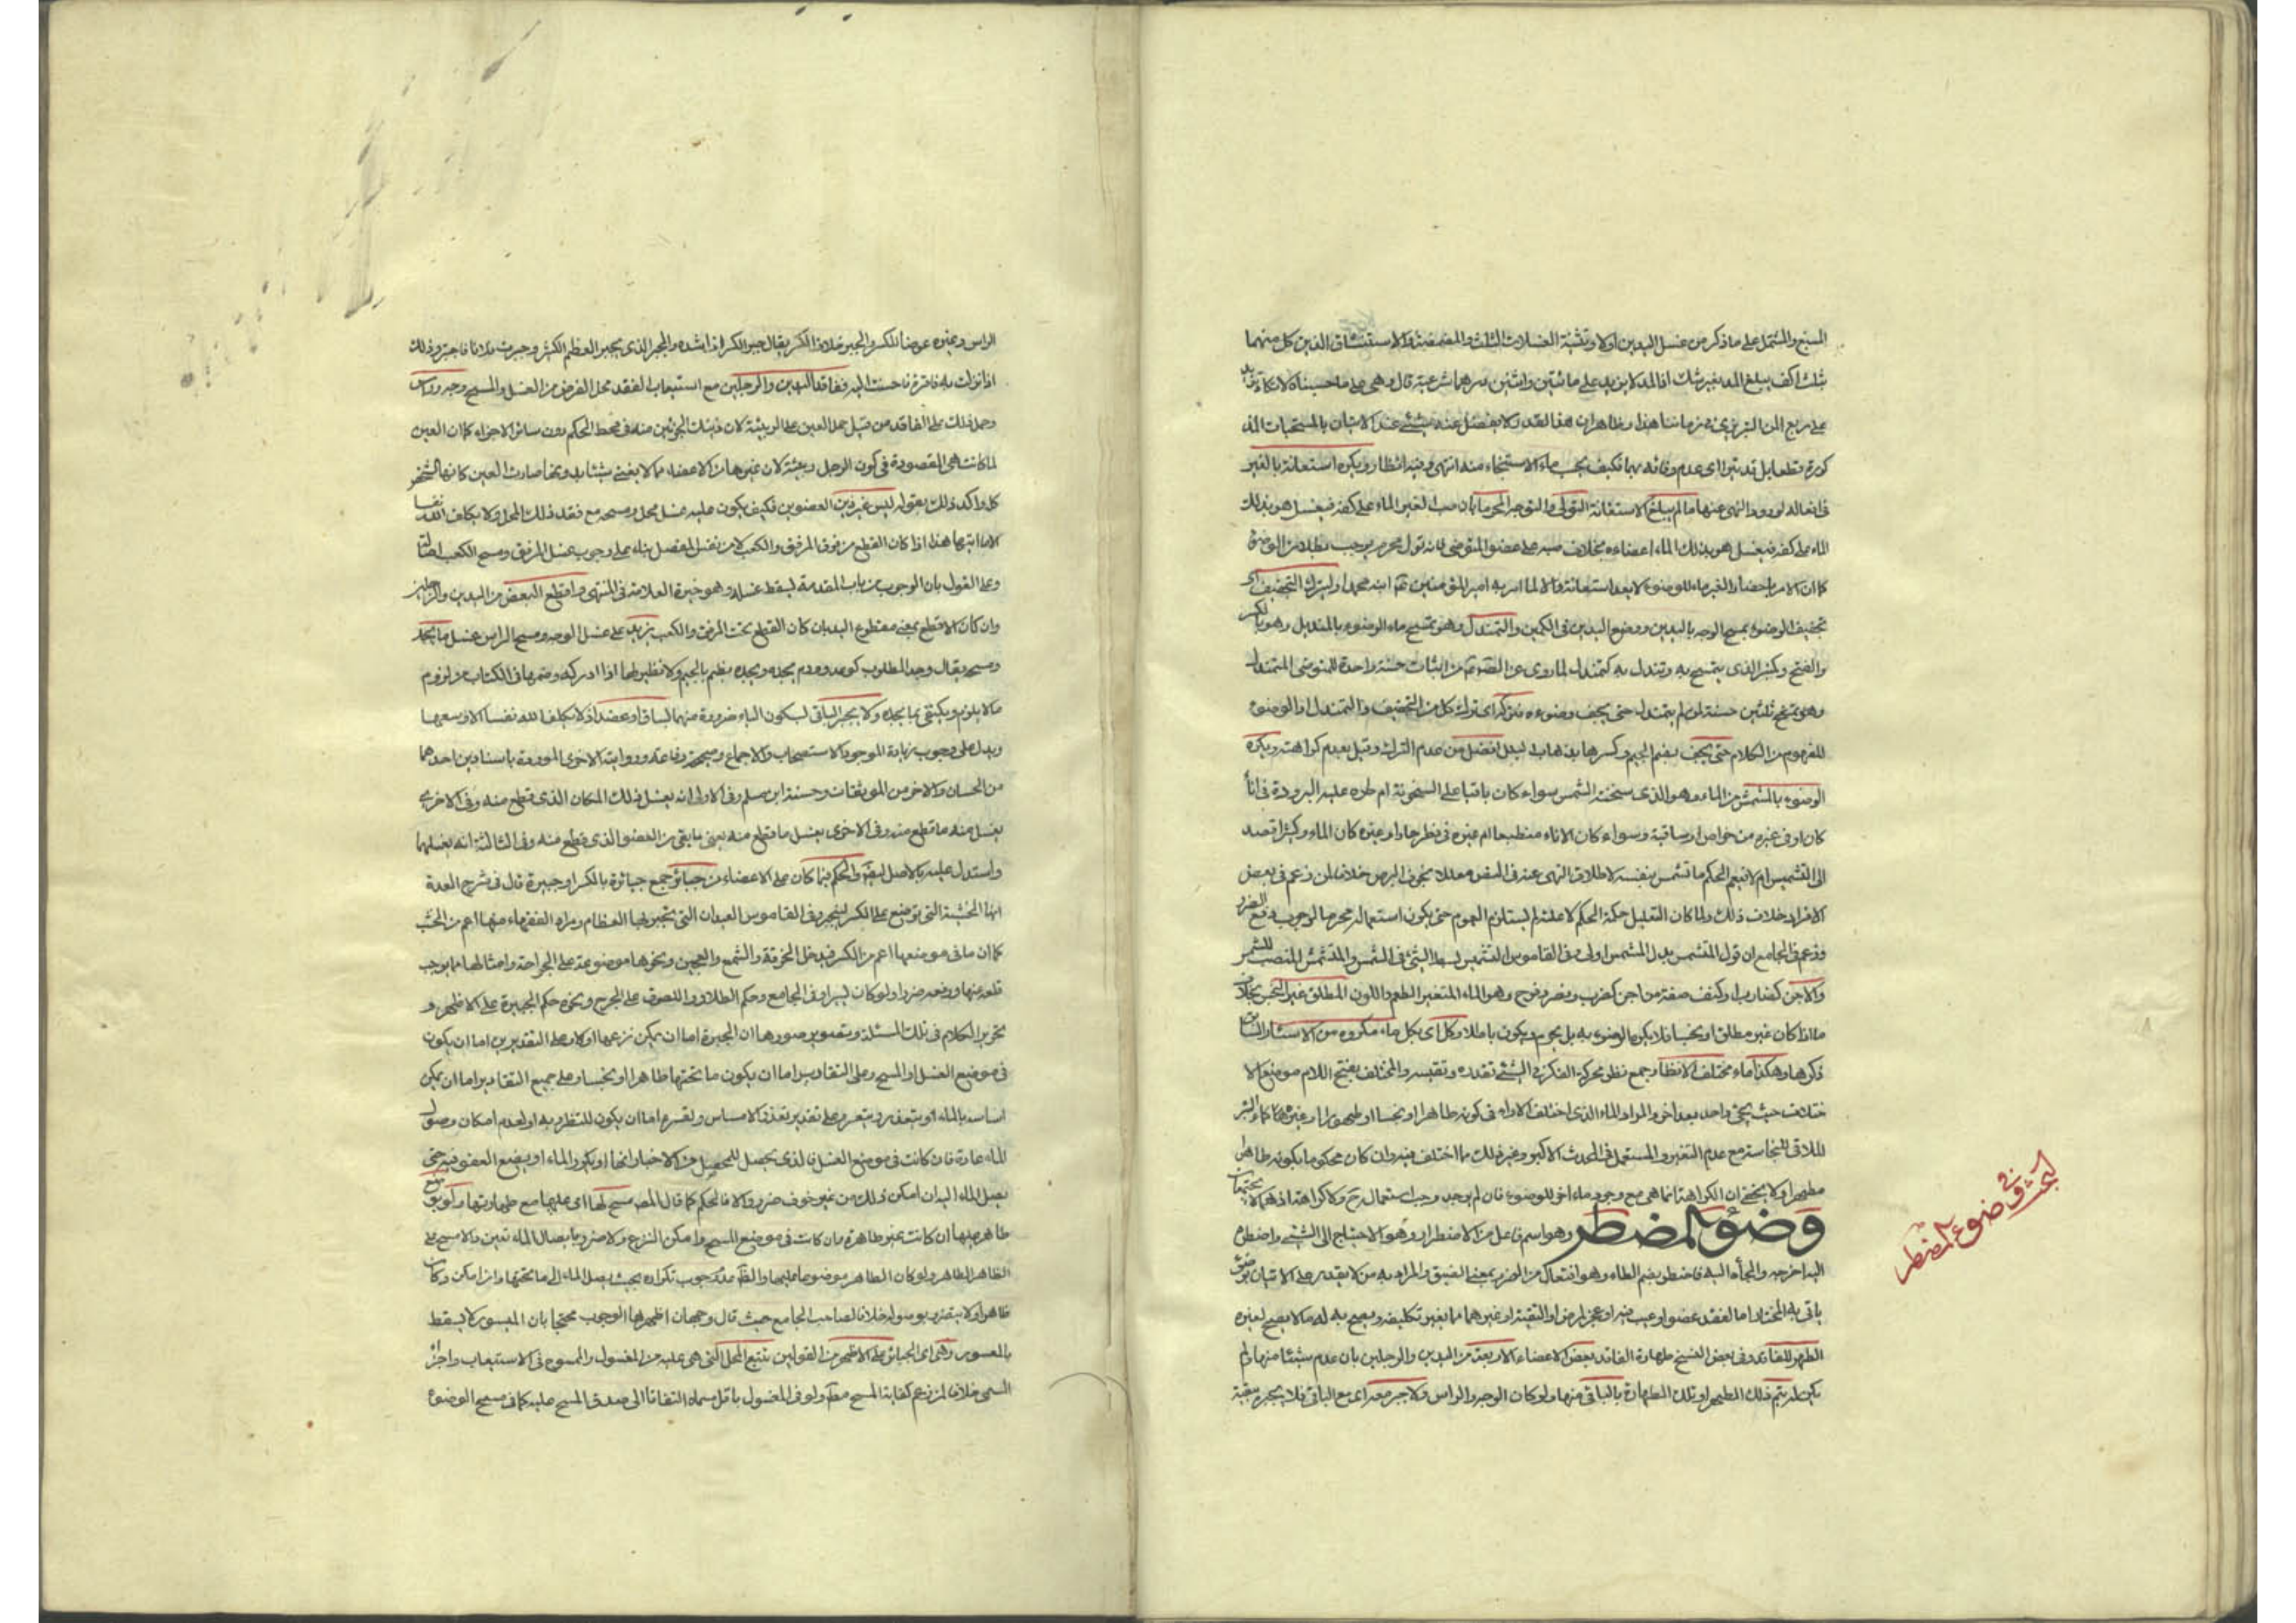 المسبغ والمشتمل على ما ذكر من غسل اليدين اولا وتثنية الغسلات الثلث والمضمضة والاستنشاق الذين كل منهما
بثلث اكف يبلغ المد بغير شك اذ المد لا يزيد على مائتين واثنين درهما شرعية قال وهى على ما حسبناه لا تكاد تزيد
على ربع المن التبريزى فى زماننا هذا وظاهر ان هذا القدر لا يفضل عنه شىء عند الاتيان بالمستحبات المذ
كورة قطعا بل قد يتراءى عدم وفائه بها فكيف يحسب ماء الاستنجاء منه انتهى وفيه انظار ويكره استعانة بالغير
فى افعاله لورود النهى عنها ما لم يبلغ الاستعانة التولى والتوجر المحرم بان صب الغير الماء على كفه فيغسل هو بذلك
الماء على كفه فيغسل هو بذلك الماء اعضاءه بخلاف صبه على عضو المتوضى فانه تول محرم يوجب بطلان الوضوء
كما ان الامر باحضار الغير ماء للوضوء لا يعد استعانة والا لما امر به امير المؤمنين ابنه محمدا وليترك التجفيف اى
تجفيف الوضوء بمسح الوجه باليدين ووضع اليدين فى الكمين والتمندل وهو تمسح ماء الوضوء بالمنديل وهو بالكسر
والفتح وكمنبر الذى يتمسح به وتندل به كتمندل لما روى عن من اثبات حسنة واحدة للمتوضى المتمندل
وهو ثلثين حسنة لمن لم يتمندل حتى يجف وضوءه فتركه اى ترك كل من التجفيف والتمندل او الوضوء
المفهوم من الكلام حتى يجف بضم الجيم وكسرها بذهاب البلل افضل من عدم الترك وقيل بعدم كراهته ويكره
الوضوء بالمشمش من الماء وهو الذى سخنته الشمس سواء كان باقيا على السخونة ام طرء عليه البرودة فى اناء
كان او فى غيره من حوض او ساقية وسواء كان الاناء منطبعا ام غيره فى قطر حار او غيره كان الماء وكثيرا قصد
الى التشميس ام لا فيعم الحكم ما تشمس بنفسه لاطلاق النهى عنه فى النص معللا بخوف البرص خلافا لمن زعم فى بعض
الافراد خلاف ذلك ولما كان التعليل حكمة الحكم لا علته لم يستلزم العموم حتى يكون استعماله محرما لوجوب دفع الضرر
وزعم فى الجامع ان قول المتشمس بدل المشمس اولى وفى القاموس التشميس بسط الشىء فى الشمس والمتشمس المنتصب للشمس
والآجن كضارب او كتف صفة من اجن كضرب ونصر وفرح وهو الماء المتغير الطعم واللون المطلق غير النجس بخلاف
ما اذا كان غير مطلق او نجسا فلا يكره الوضوء به بل يحرم ويكون باطلا وكل اى بكل ماء مكروه من الاسئار السابق
ذكرها وهكذا ماء مختلف الانظار جمع نظر محركة الفكر فى الشىء تقدره وتقيسه والمختلف بفتح اللام موضع الا
ختلاف حيث يجىء واحد بعد اخر والمراد الماء الذى اختلف الاراء فى كونه طاهرا او نجسا او طهورا او غيره كماء البئر
الملاقى للنجاسة مع عدم التغير والمستعمل فى الحدث الاكبر وغير ذلك مما اختلف فيه وان كان محكوما بكونه طاهرا
مطهرا ولا يخفى ان الكراهة انما هى مع وجود ماء اخر للوضوء فان لم يوجد وجب استعماله ح ولا كراهة اذ هما لا يجتمعان
وضوء المضطر وهو اسم فاعل من الاضطرار وهو الاحتياج الى الشىء واضطره
اليه احوجه والجأه اليه فاضطر بضم الطاء وهو افتعال من الضر بمعنى الضيق والمراد به من لا يقدر على الاتيان بوضوء
ياتى به المختار اما لفقد عضو او عيب فيه او عجز لمرض او التقية او غيرهما مما يغير تكليفه ويصح به له ما لا يصح لغيره
الطهر للفاقد وفى بعض النسخ طهارة الفاقد بعض الاعضاء الاربعة من اليدين والرجلين بان عدم شيئا منها ولم
يكن له يتم ذلك الطهر او تلك الطهارة بالباقى منها ولو كان الوجه والراس ولا جبر معه اى مع الباقى فلا يجبر ببقية
بحث فى وضوء المضطر
الراس وغيره عوضا للكسر والجبر خلاف الكسر يقال جبر الكسر اذا شده والجبر الذى يجبر العظم الكسير وجبرت فلانا فاجتبر وذلك
اذا نزلت به فاقة فاحسنت اليه ففاقد اليدين والرجلين مع استيعاب الفقد محل الفرض من الغسل والمسح وجه وراس
وحمل ذلك على الفاقد من قبيل حمل العين على الربيئة لان ذينك الجزئين منه فى محط الحكم دون سائر الاجزاء كما ان العين
لما كانت هى المقصودة فى كون الرجل ربيئة لان غيرها من الاعضاء مما لا يغنى شيئا بدونها صارت العين كانها الشخص
كله واكد ذلك بقوله ليس غير ذين العضوين فكيف يكون عليه غسل محل ومسحه مع فقد ذلك المحل ولا يكلف الله نفسا
الا ما اتيها هذا اذا كان القطع من فوق المرفق والكعب لا من نفس المفصل بناء على وجوب غسل المرفق ومسح الكعب اصالة
وعلى القول بان الوجوب من باب المقدمة يسقط غسله وهو خيرة العلامة فى المنتهى واقطع البعض من اليدين والرجلين
وان كان الاقطع بمعنى مقطوع اليد بان كان القطع تحت المرفق والكعب يزيد على غسل الوجه ومسح الراس غسل ما يجد
ومسحه يقال وجد المطلوب كوعد وورم يجده ويجده بضم الجيم ولا نظير لها اذا ادركه وضمها فى الكتاب من لزوم
ما لا يلزم ويكتفى بما يجده ولا يجبر الباقى ليكون الباء ضرورة منهما لساق او عضد اذ لا يكلف الله نفسا الا وسعها
ويدل على وجوب زيادة الموجود الاستصحاب والاجماع وصحيحة رفاعة وروايته الاخرى الموردة باسنادين احدهما
من الحسان والاخر من الموثقات وحسنة ابن مسلم وفى الاولى انه يغسل ذلك المكان الذى قطع منه وفى الاخرى
يغسل منه ما قطع منه وفى الاخرى يغسل ما قطع منه يعنى ما بقى من العضو الذى قطع منه وفى الثالثة انه يغسلهما
واستدل عليه بالاصل والحكم فيما كان على الاعضاء من جبائر جمع جبارة بالكسر او جبيرة قال فى شرح العدة
انها الخشبة التى توضع على الكسر لينجبر وفى القاموس العيدان التى يجبر بها العظام ومراد الفقهاء منها اعم من الخشب
كما ان ما فى موضعها اعم من الكسر فيدخل الخرقة والشمع والعجين ونحوها موضوعة على الجراحة وامثالها مما يوجب
قلعه منها ورفعه ضررا ولو كان يسيرا وفى الجامع وحكم الطلاء واللصوق على الجرح ونحوه حكم الجبيرة على الاظهر و
تحرير الكلام فى تلك المسئلة وتصوير صورها ان الجبيرة اما ان يمكن نزعها او لا وعلى التقديرين اما ان يكون
فى موضع الغسل او المسح وعلى التقادير اما ان يكون ما تحتها طاهرا او نجسا وعلى جميع التقادير اما ان يمكن
امساسه بالماء او يتعذر ويتعسر وعلى تقدير تعذر الامساس وتعسره اما ان يكون للتضرر به او لعدم امكان وصول
الماء عادة فان كانت فى موضع الغسل فالذى يحصل للمحصل من الاخبار انها او يكرر الماء او يضع العضو فيه حتى
يصل الماء اليه ان امكن ذلك من غير خوف ضرر والا فالحكم كما قال المص مسح لها اى عليها مع طهارتها ولو بوضع
طاهر عليها ان كانت غير طاهرة وان كانت فى موضع المسح وامكن النزع ولا ضرر بايصال الماء تعين والا مسح على
الظاهر الطاهر ولو كان الطاهر موضوعا عليها وجوب تكراره بحيث يصل الماء الى ما تحتها وان امكن وكان
طاهرا ولا يتضرر بوصوله خلافا لصاحب الجامع حيث قال وجهان اظهرهما الوجوب محتجا بان الميسور لا يسقط
بالمعسور وهى اى الجبائر على الاظهر من القولين تتبع المحل التى هى عليه من المغسول والممسوح فى الاستيعاب واجزاء
المسمى خلافا لمن زعم كفاية المسح ولو فى المغسول باقل مسماه التفاتا الى صدق المسح عليه كما فى مسح الوضوء